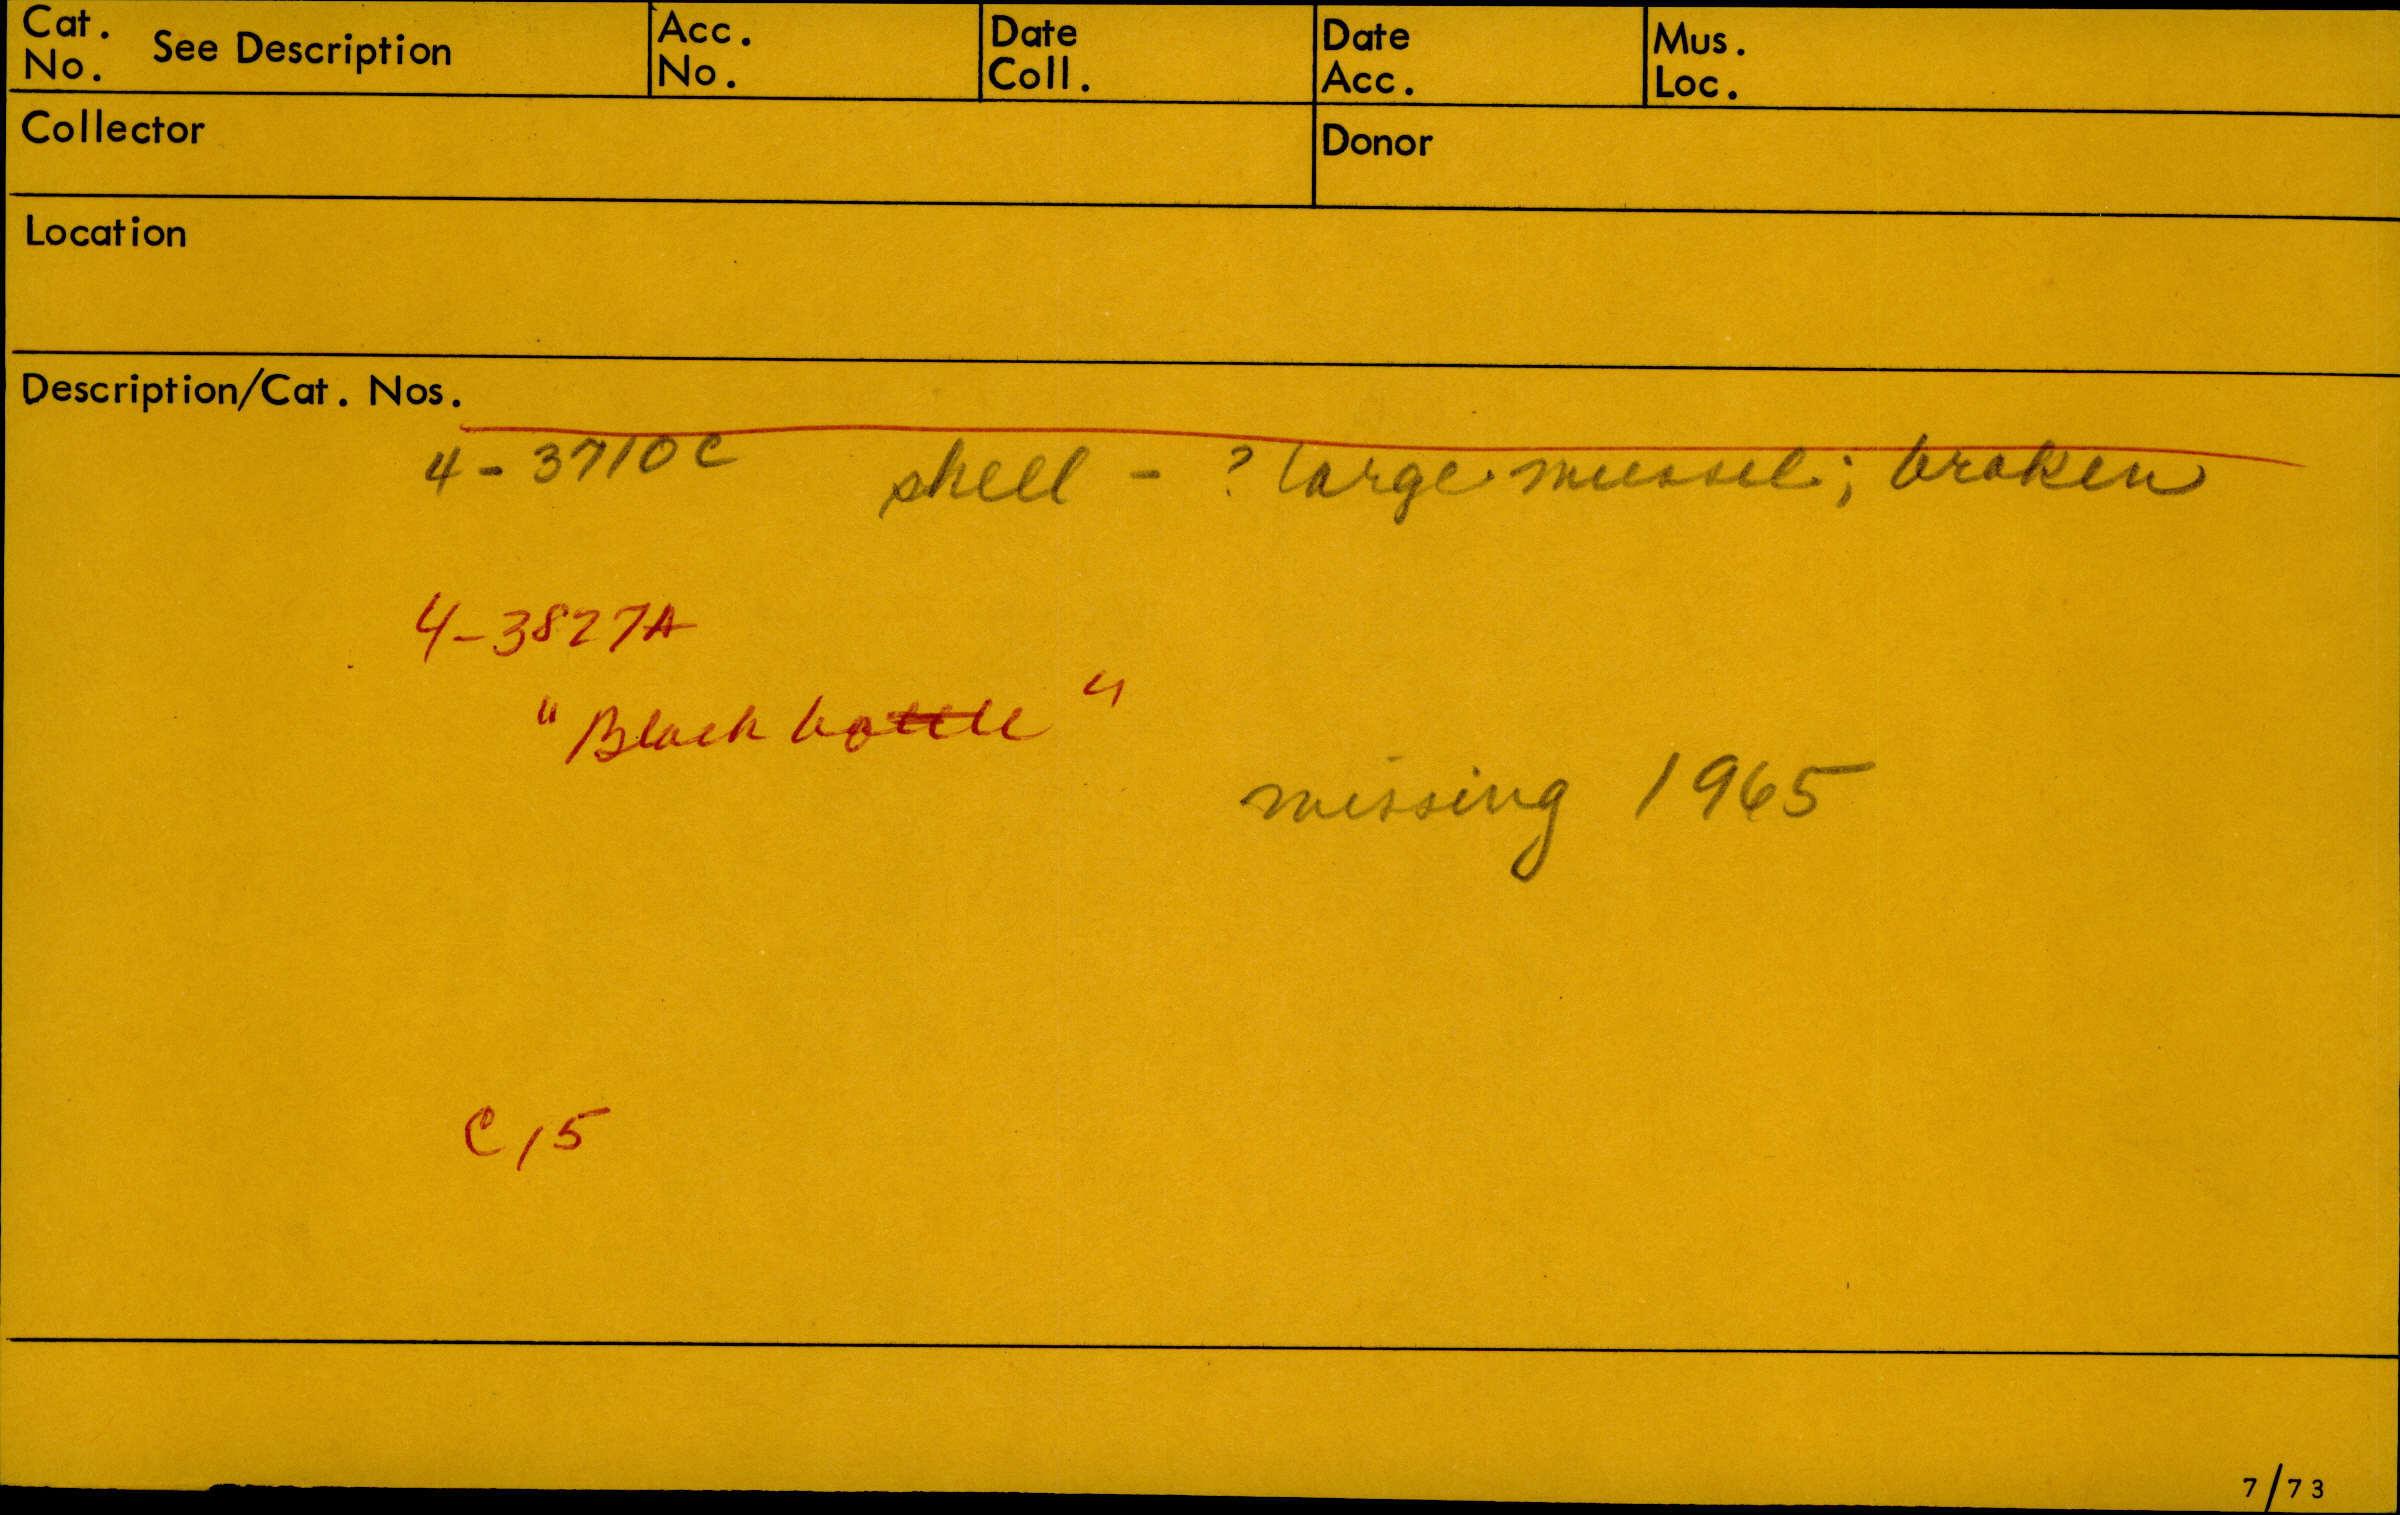 Cat. No. See Description
Acc. No.
Date Coll.
Date Acc.
Mus. Loc.
Collector
Donor
Location
Description/Cat. Nos.
4-3710C shell - ? large mussel; broken
4-3827A
"Black bottle"
missing 1965
C15
7/73